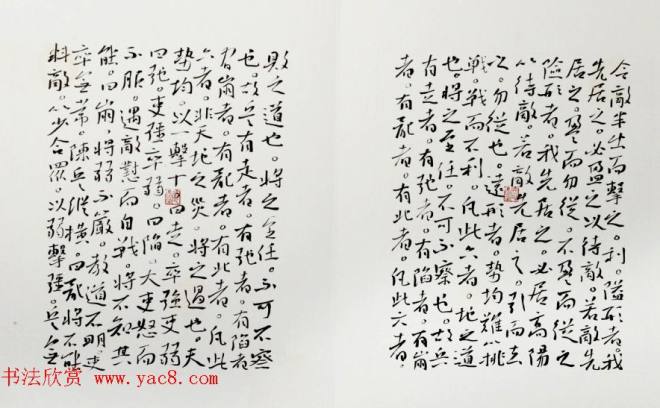 令敵半出而擊之。利。隘形者。我
先居之。必盈之以待敵。若敵先
居之。盈而勿從。不盈而從之
險形者。我先居之。必居高陽
以待敵。若敵先居之。引而去
之。勿從也。遠形者。勢均。難以挑
戰。戰而不利。凡此六者。地之道
也。將之至任。不可不察也。故兵
有走者。有弛者。有陷者。有崩
者。有亂者。有北者。凡此六者。
敗之道也。將之至任。不可不察
也。故兵有走者。有弛者。有陷者
有崩者。有亂者。有北者。凡此
六者。非天地之災。將之過也。夫
勢均。以一擊十。曰走。卒強吏弱
曰弛。吏強卒弱。曰陷。大吏怒而
不服。遇敵懟而自戰。將不知其
能。曰崩。將弱不嚴。教道不明。吏
卒無常。陳兵縱橫。曰亂。將不能
料敵。以少合眾。以弱擊強。兵無
书法欣赏 www.yac8.com